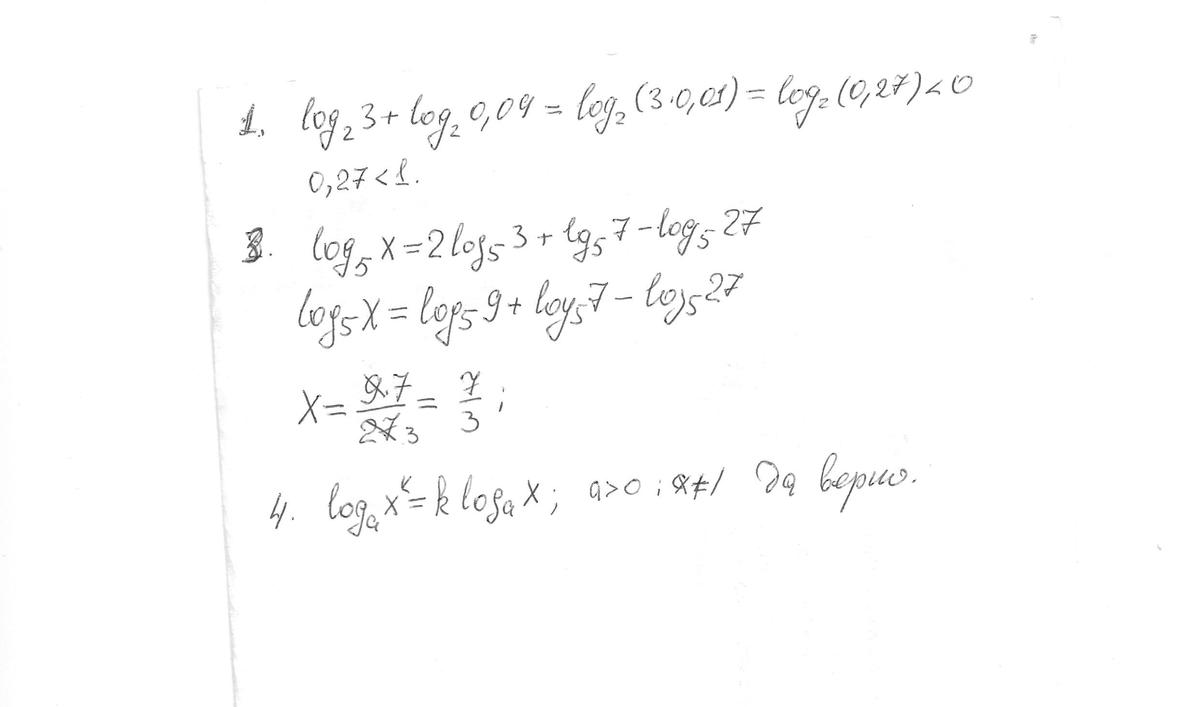 1. log₂ 3 + log₂ 0,09 = log₂ (3·0,01) = log₂ (0,27) < 0
0,27 < 1.
3. log₅ x = 2 log₅ 3 + lg₅ 7 - log₅ 27
log₅ x = log₅ 9 + log₅ 7 - log₅ 27
x = 9·7/27 3 = 7/3 ;
4. logₐ xᵏ = k logₐ x ; a>0 ; a≠1 Да верно.